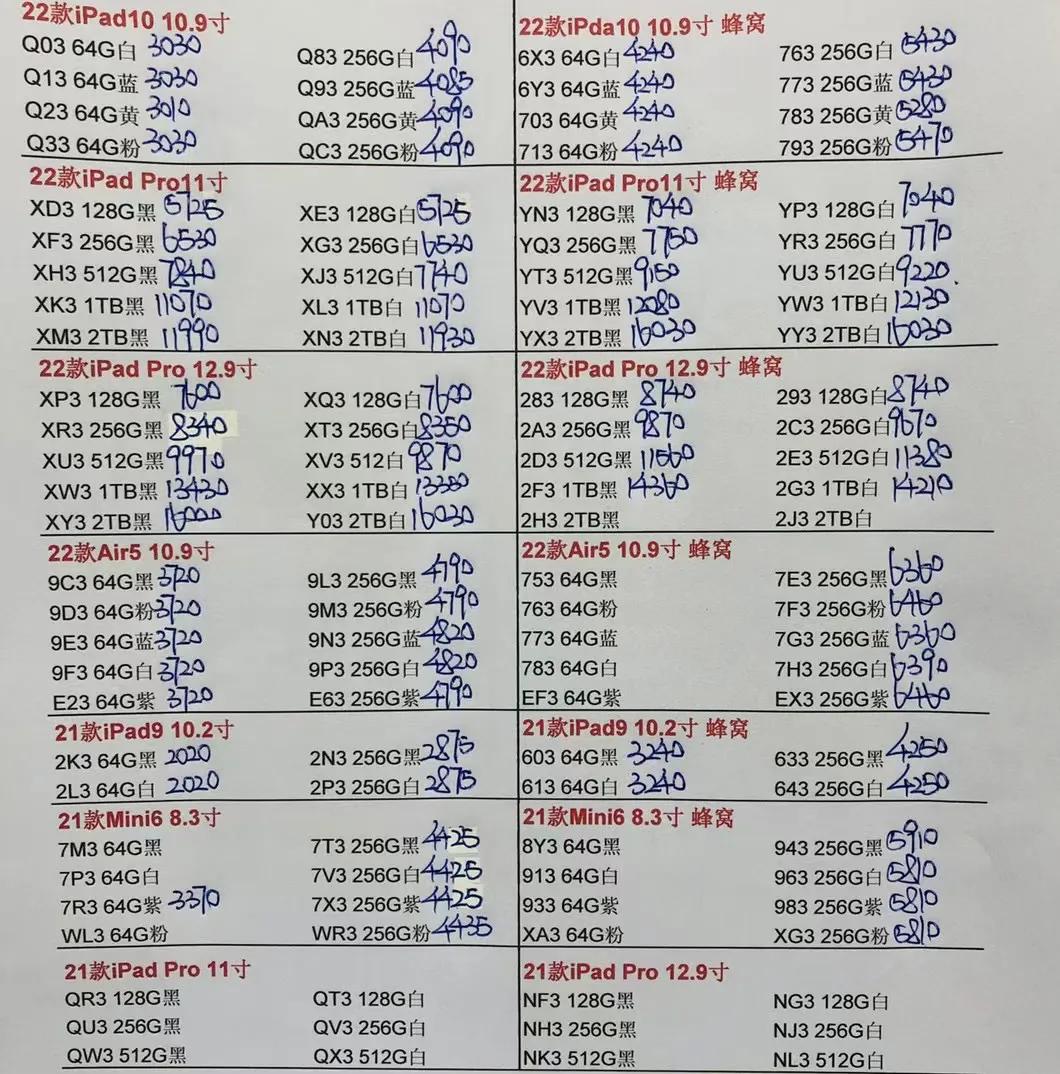 22款iPad10 10.9寸
Q03 64G白 3030 Q83 256G白 4090
Q13 64G蓝 3030 Q93 256G蓝 4085
Q23 64G黄 3010 QA3 256G黄 4090
Q33 64G粉 3030 QC3 256G粉 4090
22款iPda10 10.9寸 蜂窝
6X3 64G白 4240 763 256G白 5430
6Y3 64G蓝 4240 773 256G蓝 5430
703 64G黄 4240 783 256G黄 5280
713 64G粉 4240 793 256G粉 5470
22款iPad Pro11寸
XD3 128G黑 5725 XE3 128G白 5725
XF3 256G黑 6530 XG3 256G白 6530
XH3 512G黑 7840 XJ3 512G白 7740
XK3 1TB黑 11070 XL3 1TB白 11070
XM3 2TB黑 11990 XN3 2TB白 11930
22款iPad Pro11寸 蜂窝
YN3 128G黑 7040 YP3 128G白 7040
YQ3 256G黑 7750 YR3 256G白 7770
YT3 512G黑 9150 YU3 512G白 9220
YV3 1TB黑 12080 YW3 1TB白 12130
YX3 2TB黑 16030 YY3 2TB白 16030
22款iPad Pro 12.9寸
XP3 128G黑 7600 XQ3 128G白 7600
XR3 256G黑 8340 XT3 256G白 8350
XU3 512G黑 9970 XV3 512白 9870
XW3 1TB黑 13430 XX3 1TB白
XY3 2TB黑 16000 Y03 2TB白 16030
22款iPad Pro 12.9寸 蜂窝
283 128G黑 8740 293 128G白 8740
2A3 256G黑 9870 2C3 256G白 9670
2D3 512G黑 11560 2E3 512G白 11380
2F3 1TB黑 14360 2G3 1TB白 14210
2H3 2TB黑 2J3 2TB白
22款Air5 10.9寸
9C3 64G黑 3720 9L3 256G黑 4790
9D3 64G粉 3720 9M3 256G粉 4790
9E3 64G蓝 3720 9N3 256G蓝 4820
9F3 64G白 3720 9P3 256G白 4820
E23 64G紫 3720 E63 256G紫 4790
22款Air5 10.9寸 蜂窝
753 64G黑 7E3 256G黑 6360
763 64G粉 7F3 256G粉 6460
773 64G蓝 7G3 256G蓝 6360
783 64G白 7H3 256G白 6390
EF3 64G紫 EX3 256G紫 6460
21款iPad9 10.2寸
2K3 64G黑 2020 2N3 256G黑 2875
2L3 64G白 2020 2P3 256G白 2875
21款iPad9 10.2寸 蜂窝
603 64G黑 3240 633 256G黑 4250
613 64G白 3240 643 256G白 4250
21款Mini6 8.3寸
7M3 64G黑 7T3 256G黑 4425
7P3 64G白 7V3 256G白 4425
7R3 64G紫 3370 7X3 256G紫 4425
WL3 64G粉 WR3 256G粉 4435
21款Mini6 8.3寸 蜂窝
8Y3 64G黑 943 256G黑 5910
913 64G白 963 256G白 5810
933 64G紫 983 256G紫 5810
XA3 64G粉 XG3 256G粉 5810
21款iPad Pro 11寸
QR3 128G黑 QT3 128G白
QU3 256G黑 QV3 256G白
QW3 512G黑 QX3 512G白
21款iPad Pro 12.9寸
NF3 128G黑 NG3 128G白
NH3 256G黑 NJ3 256G白
NK3 512G黑 NL3 512G白